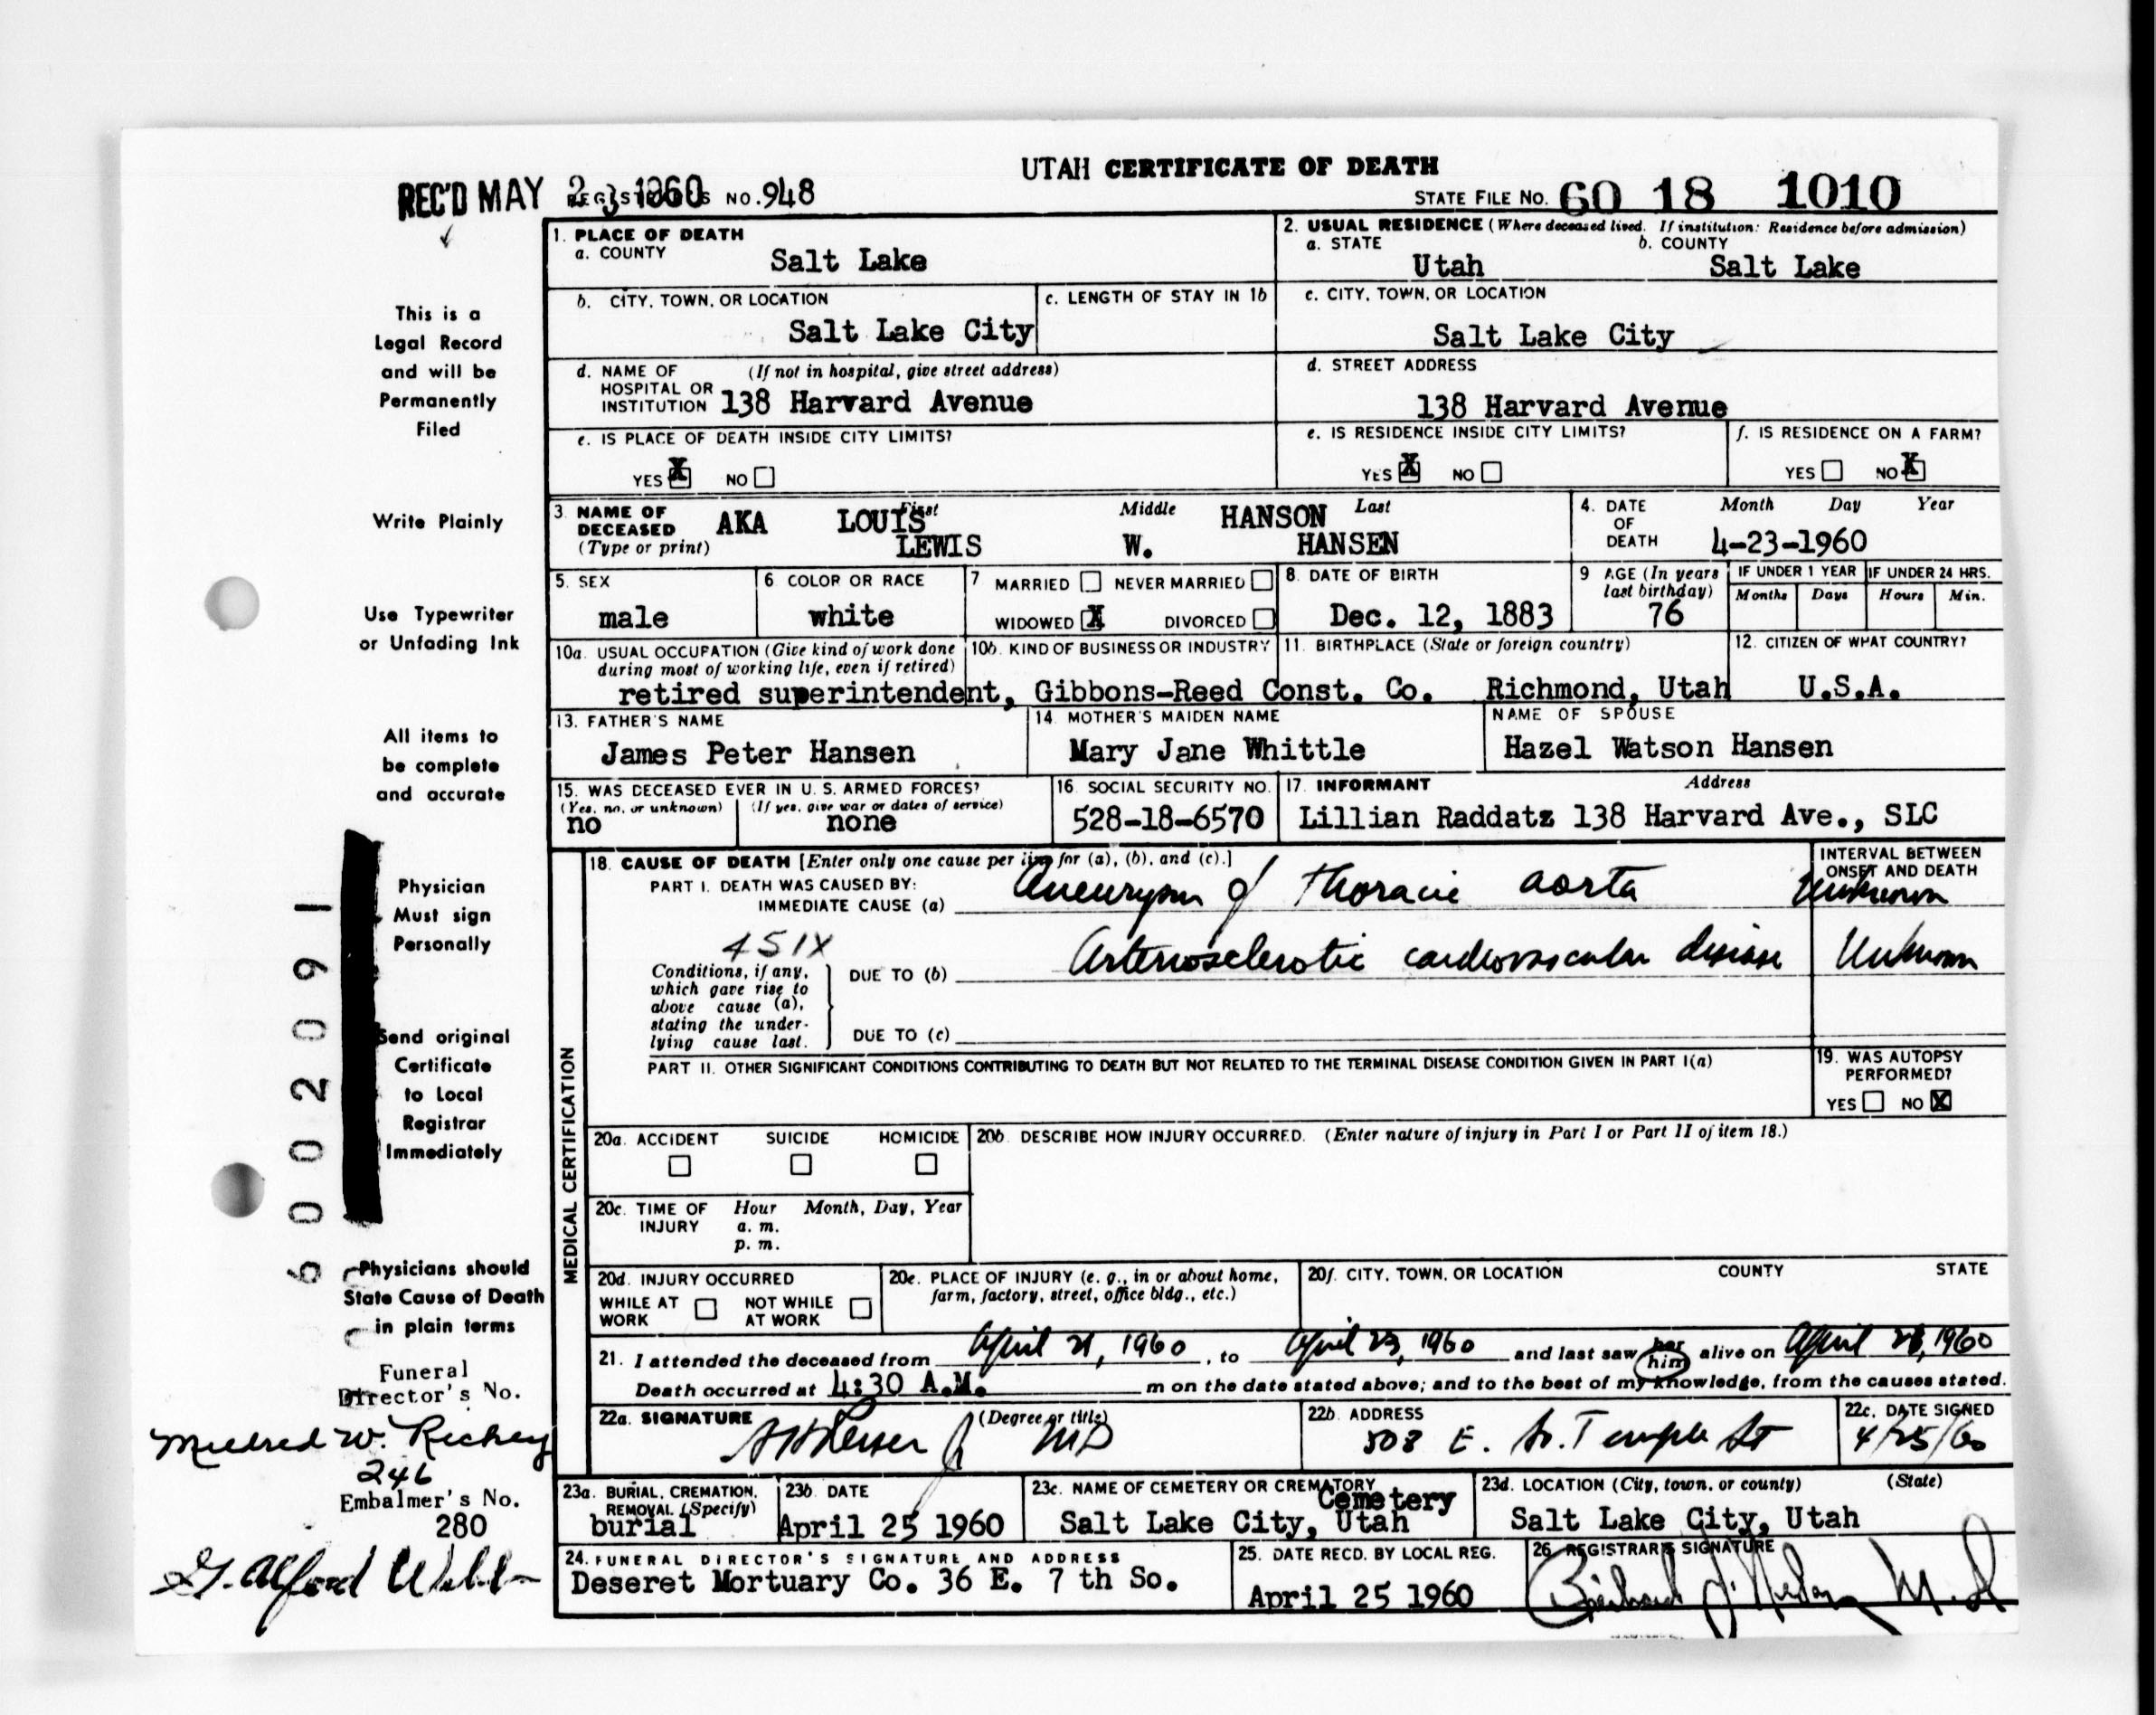 UTAH CERTIFICATE OF DEATH
REC'D MAY 2 3 1960 REGISTRAR'S NO. 948
STATE FILE NO. 60 18 1010
1. PLACE OF DEATH
a. COUNTY Salt Lake
2. USUAL RESIDENCE (Where deceased lived. If institution: Residence before admission)
a. STATE Utah b. COUNTY Salt Lake
b. CITY, TOWN, OR LOCATION Salt Lake City
c. LENGTH OF STAY IN 1b
c. CITY, TOWN, OR LOCATION Salt Lake City
d. NAME OF HOSPITAL OR INSTITUTION (If not in hospital, give street address) 138 Harvard Avenue
d. STREET ADDRESS 138 Harvard Avenue
e. IS PLACE OF DEATH INSIDE CITY LIMITS?
YES X NO
e. IS RESIDENCE INSIDE CITY LIMITS?
YES X NO
f. IS RESIDENCE ON A FARM?
YES NO X
3. NAME OF DECEASED (Type or print) First Middle Last
AKA LOUIS HANSON
LEWIS W. HANSEN
4. DATE OF DEATH Month Day Year
4-23-1960
5. SEX male
6. COLOR OR RACE white
7. MARRIED NEVER MARRIED
WIDOWED X DIVORCED
8. DATE OF BIRTH Dec. 12, 1883
9. AGE (In years last birthday) 76
IF UNDER 1 YEAR Months Days
IF UNDER 24 HRS. Hours Min.
10a. USUAL OCCUPATION (Give kind of work done during most of working life, even if retired)
10b. KIND OF BUSINESS OR INDUSTRY
retired superintendent, Gibbons-Reed Const. Co.
11. BIRTHPLACE (State or foreign country) Richmond, Utah
12. CITIZEN OF WHAT COUNTRY? U.S.A.
13. FATHER'S NAME James Peter Hansen
14. MOTHER'S MAIDEN NAME Mary Jane Whittle
NAME OF SPOUSE Hazel Watson Hansen
15. WAS DECEASED EVER IN U. S. ARMED FORCES?
(Yes, no, or unknown) no (If yes, give war or dates of service) none
16. SOCIAL SECURITY NO. 528-18-6570
17. INFORMANT Address
Lillian Raddatz 138 Harvard Ave., SLC
MEDICAL CERTIFICATION
18. CAUSE OF DEATH [Enter only one cause per line for (a), (b), and (c).]
INTERVAL BETWEEN ONSET AND DEATH
PART I. DEATH WAS CAUSED BY:
IMMEDIATE CAUSE (a) Aneurysm of Thoracic aorta Unknown
451X
Conditions, if any, which gave rise to above cause (a), stating the underlying cause last.
DUE TO (b) Arteriosclerotic cardiovascular disease Unknown
DUE TO (c)
PART II. OTHER SIGNIFICANT CONDITIONS CONTRIBUTING TO DEATH BUT NOT RELATED TO THE TERMINAL DISEASE CONDITION GIVEN IN PART I(a)
19. WAS AUTOPSY PERFORMED?
YES NO X
20a. ACCIDENT SUICIDE HOMICIDE
20b. DESCRIBE HOW INJURY OCCURRED. (Enter nature of injury in Part I or Part II of item 18.)
20c. TIME OF INJURY Hour Month, Day, Year
a. m.
p. m.
20d. INJURY OCCURRED
WHILE AT WORK NOT WHILE AT WORK
20e. PLACE OF INJURY (e. g., in or about home, farm, factory, street, office bldg., etc.)
20f. CITY, TOWN, OR LOCATION COUNTY STATE
21. I attended the deceased from April 21, 1960, to April 23, 1960 and last saw her him alive on April 1960
Death occurred at 4:30 A.M. m on the date stated above; and to the best of my knowledge, from the causes stated.
22a. SIGNATURE (Degree or title) MD
22b. ADDRESS 508 E. So. Temple St
22c. DATE SIGNED 4/25/60
23a. BURIAL, CREMATION, REMOVAL (Specify) burial
23b. DATE April 25 1960
23c. NAME OF CEMETERY OR CREMATORY
Salt Lake City, Utah Cemetery
23d. LOCATION (City, town, or county) (State)
Salt Lake City, Utah
24. FUNERAL DIRECTOR'S SIGNATURE AND ADDRESS
Deseret Mortuary Co. 36 E. 7 th So.
25. DATE RECD. BY LOCAL REG.
April 25 1960
26. REGISTRAR'S SIGNATURE
This is a
Legal Record
and will be
Permanently
Filed
Write Plainly
Use Typewriter
or Unfading Ink
All items to
be complete
and accurate
Physician
Must sign
Personally
Send original
Certificate
to Local
Registrar
Immediately
Physicians should
State Cause of Death
in plain terms
Funeral
Director's No.
Mildred W. Richey
246
Embalmer's No.
280
G. Alford Webb
6002091